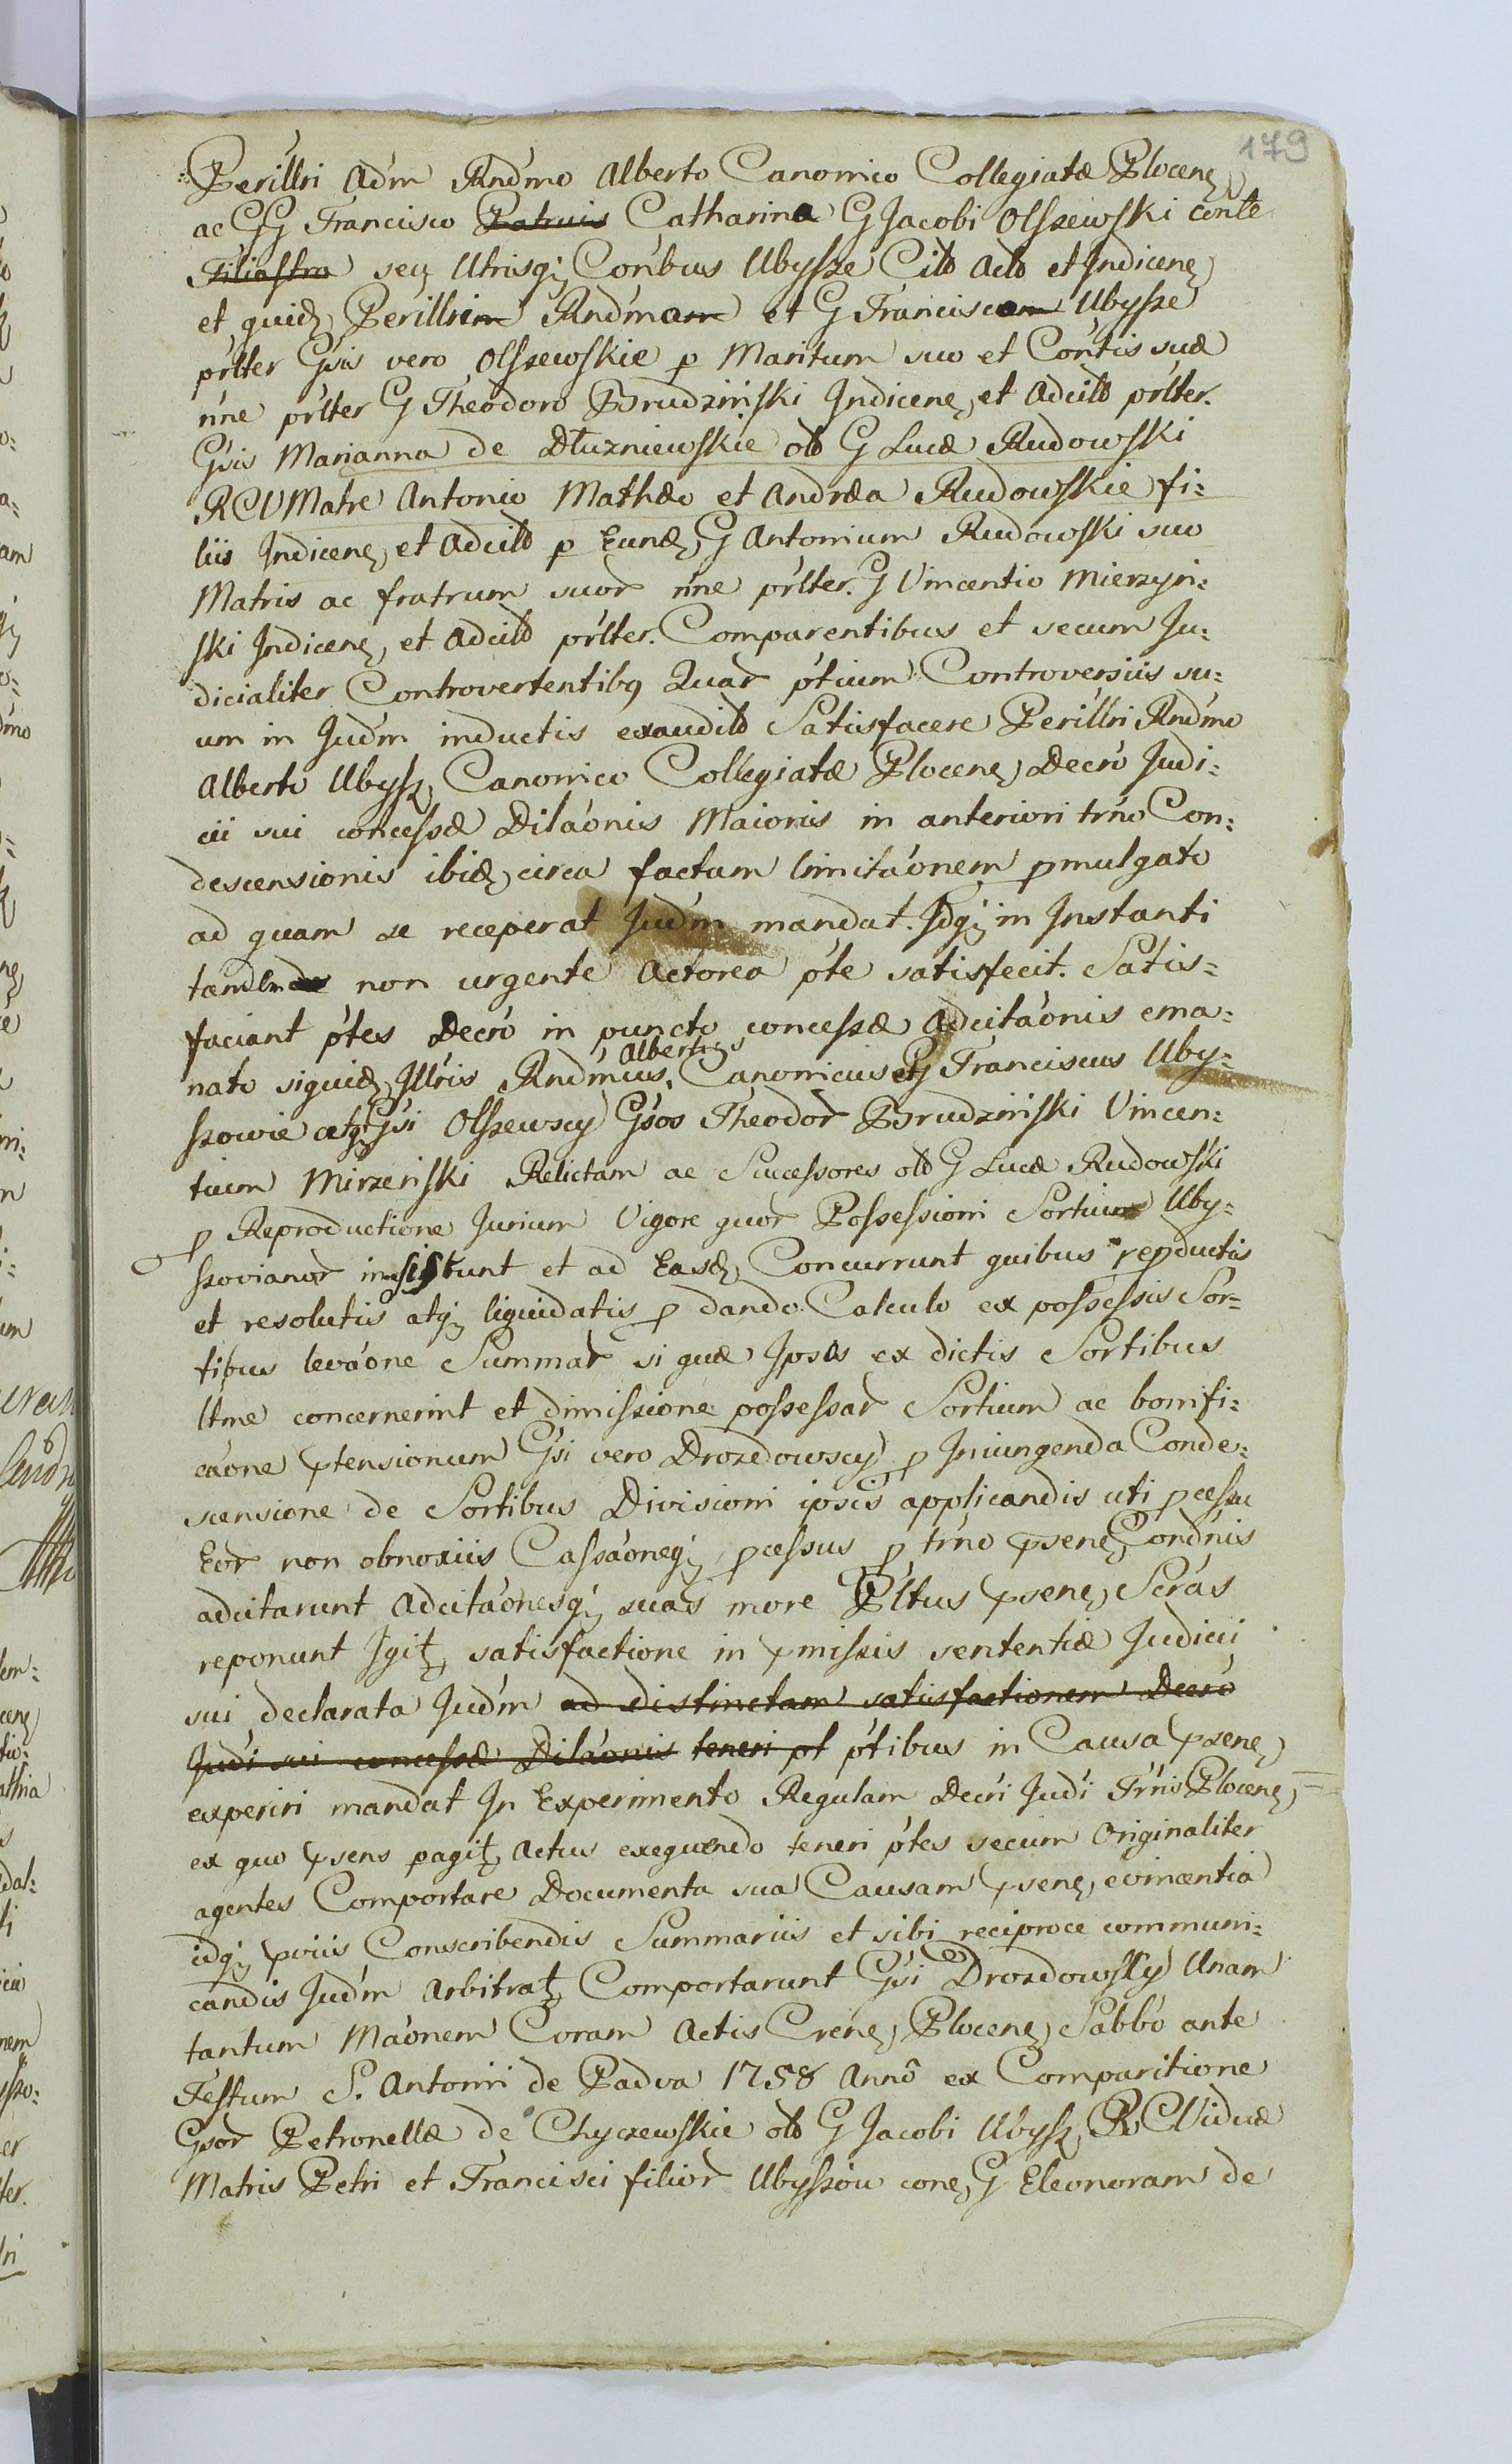 179
Perillri Adm Rndmo Alberto Canonico Collegiatæ Plocen
ac GG Francisco Patruis Catharina G Jacobi Olszewski conte
Filiastra seu Utrisq Conbus Ubysze Citd Actd et Indicen
et quid Perillrim Rndmam et G Franciscam Ubysze
prlter Gsis vero Olszewskie p Maritum suo et Contis suæ
nne prlter G Theodoro Brudziński Indicen, et Adcitd prlter.
Gsis Marianna de Dłuzniewskie old G Lucæ Rudowski
RCV Matre Antonio Mathæo et Andræa Rudowskie fi:
liis Indicen, et Adcitd p Eund, G Antonium Rudowski suo
Matris ac fratrum suor nne prlter. G Vincentio Mierzyn:
ski Indicen, et Adcitd prlter. Comparentibus et secum Ju:
dicialiter Controvertentibq Quar ptium Controversiis su:
um in Judm inductis exauditd Satisfacere Perillri Rndmo
Alberto Ubysz, Canonico Collegiatæ Plocen, Decro Judi:
cii sui concessæ Dilaonis Maioris in anteriori trno Con:
descensionis ibid, circa factam limitaonem pmulgato
ad quam se receperat Judm mandat. Idq in Instanti
non urgente Actorea pte satisfecit. Satis=
faciant ptes Decro in puncto concessæ Adcitaonis ema:
nato siquid, Illris Rndmus, Albertus Canonicus et G Franciscus Uby:
szowie atq Gsi Olszewscy Gsos Theodor Brudziński Vincen:
tium Mirzeński Relictam ac Successores old G Lucæ Rudowski
p Reproductione Jurium Vigore quor Possessioni Sortium Uby:
szovianor insistunt et ad Easd, Concurrunt quibus repductis
et resolutis atq liquidatis p dando Calculo ex possessis Sor=
tibus levaone Summar si quæ Ipsos ex dictis Sortibus
ltme concernerint et dimissione possessar Sortium ac bonifi:
caone ptensionum Gsi vero Drozdowscy p Iniungenda Conde:
scensione de Sortibus Divisioni ipsis applicandis uti pcessu
Eor non obnoxiis Cassaoneq pcessus p trno psene, Condnis
adcitarunt Adcitaonesq suas more Pltus psen, Scras
reponunt Igit, satisfactione in pmissis sententiæ Judicii
sui declarata Judm ad distinctam satisfactionem Decro
Judi sui concessæ Dilaonis teneri pt ptibus in Causa psen,
experiri mandat In Experimento Regulam Decri Judi Trnis Plocen,
ex quo psens pagit, Actus exequendo teneri ptes secum Originaliter
agentes Comportare Documenta sua Causam psen, evincentia
idq pviis Conscribendis Summariis et sibi reciproce communi:
candis Judm Arbitrat, Comportarunt Gsi Drozdowsky Unam
tantum Maonem Coram Actis Cren, Plocen, Sabbo ante
Festum S. Antonii de Padva 1758 Anno ex Comparitione
Gsor Petronellæ de Chyczewskie old G Jacobi Ubysz, R C Viduæ
Matris Petri et Francisci filior Ubyszow con, G Eleonoram de